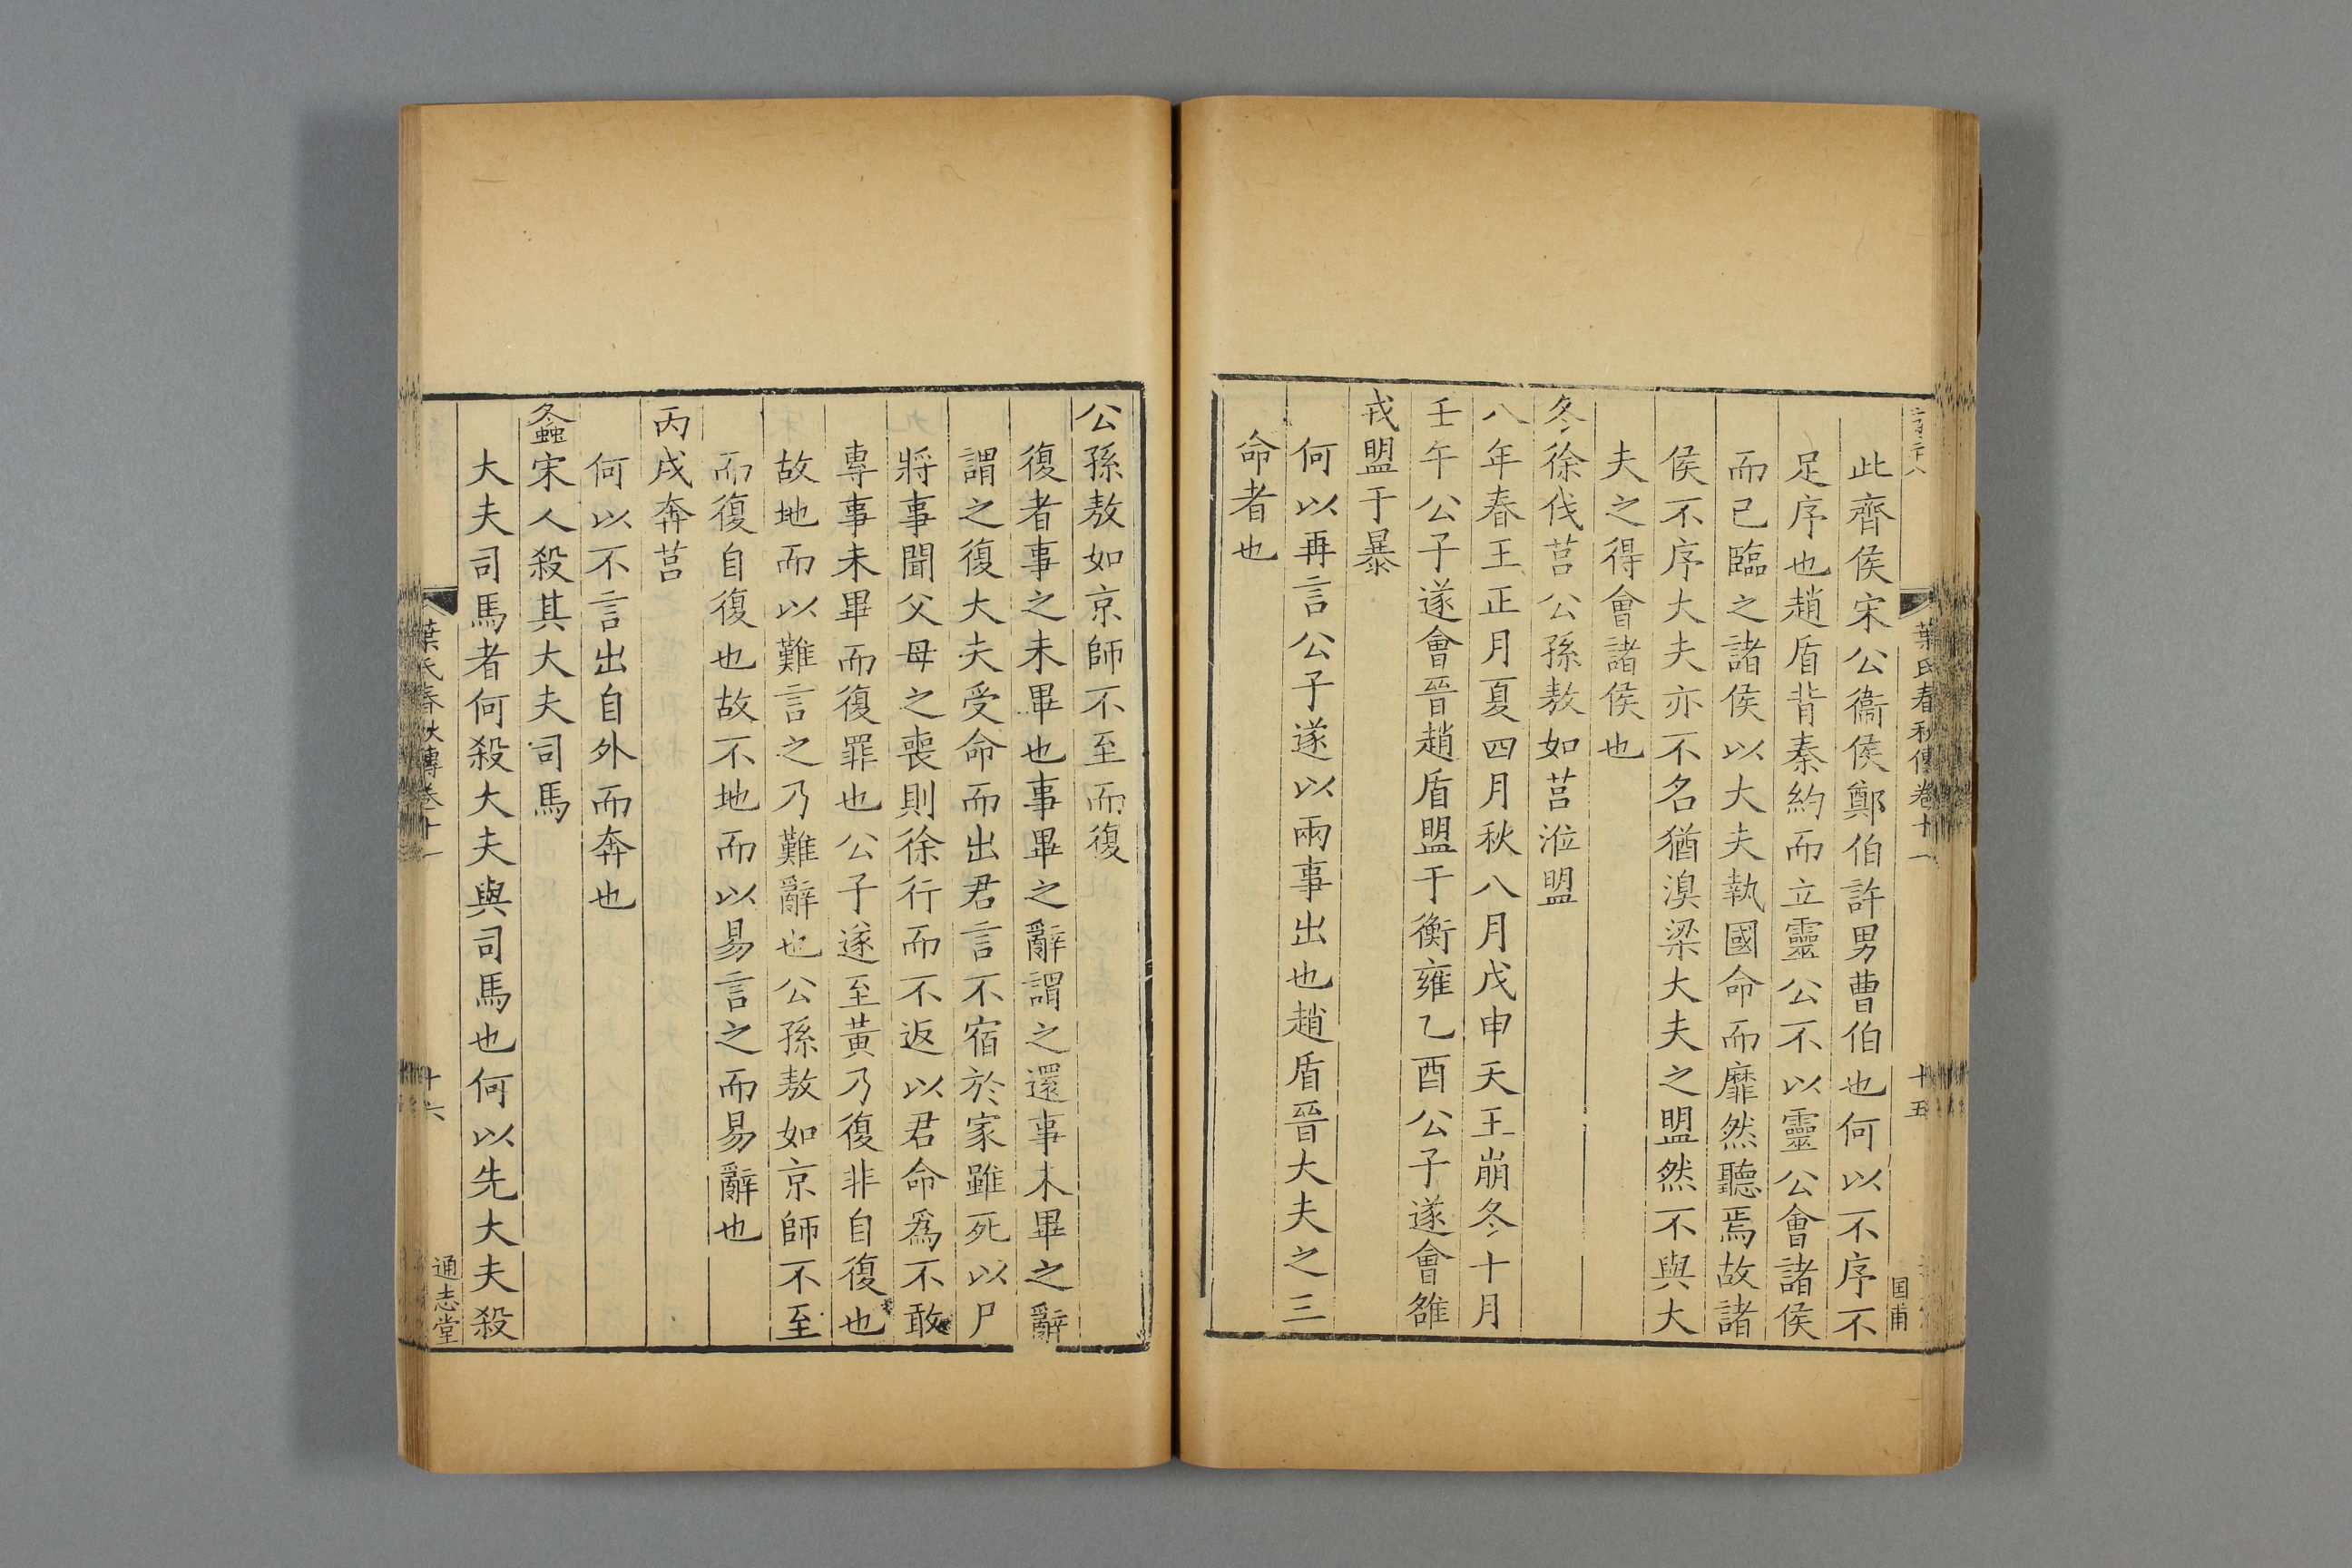 葉氏春秋傳卷十一
十五
国甫
此齊侯宋公衞侯鄭伯許男曹伯也何以不序不
足序也趙盾背秦約而立靈公不以靈公會諸侯
而已臨之諸侯以大夫執國命而靡然聽焉故諸
侯不序大夫亦不名猶湨梁大夫之盟然不與大
夫之得會諸侯也
冬徐伐莒公孫敖如莒涖盟
八年春王正月夏四月秋八月戊申天王崩冬十月
壬午公子遂會晉趙盾盟于衡雍乙酉公子遂會雒
戎盟于暴
何以再言公子遂以兩事出也趙盾晉大夫之三
命者也
公孫敖如京師不至而復
復者事之未畢也事畢之辭謂之還事未畢之辭
謂之復大夫受命而出君言不宿於家雖死以尸
將事聞父母之喪則徐行而不返以君命爲不敢
専事未畢而復罪也公子遂至黃乃復非自復也
故地而以難言之乃難辭也公孫敖如京師不至
而復自復也故不地而以易言之而易辭也
丙戌奔莒
何以不言出自外而奔也
螽宋人殺其大夫司馬
大夫司馬者何殺大夫與司馬也何以先大夫殺
葉氏春秋傳卷十一
十六
通志堂